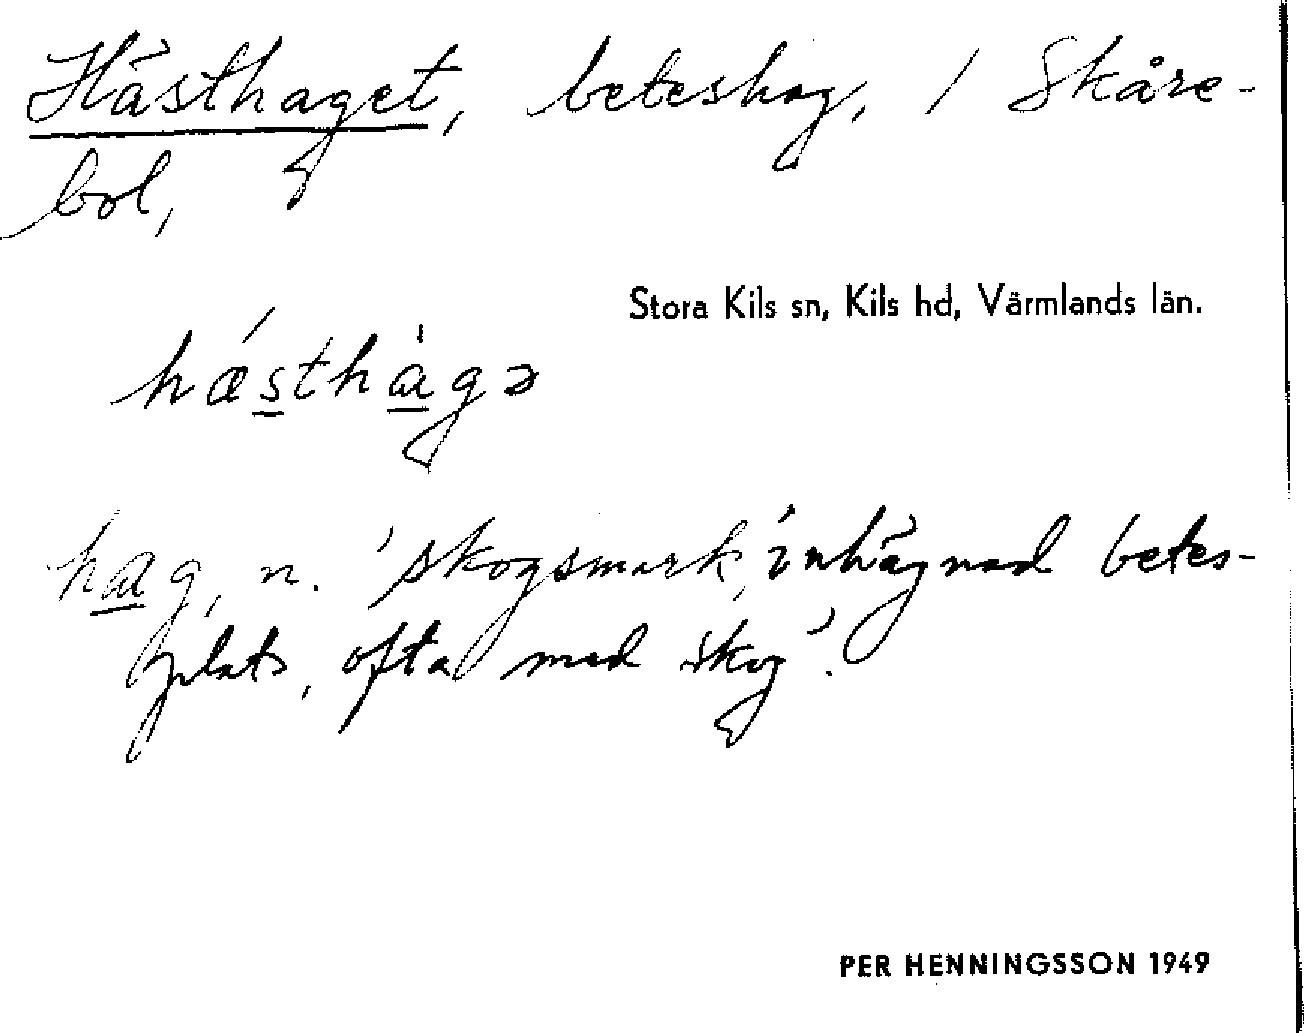 Hästhaget, beteshag, 1 Skåre-
bol,
Stora Kils sn, Kils hd, Värmlands län.
hǽsthàgə
hag, n. 'skogsmark, inhägnad betes-
plats, ofta med skog'.
PER HENNINGSSON 1949